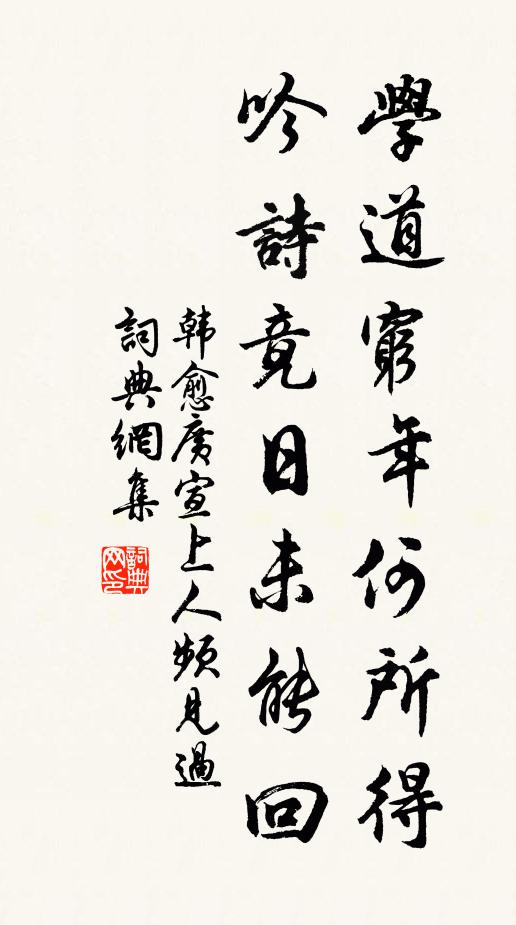 學道窮年何所得
吟詩竟日未能回
韩愈廣宣上人频見過
詞典網集
詞典
网印